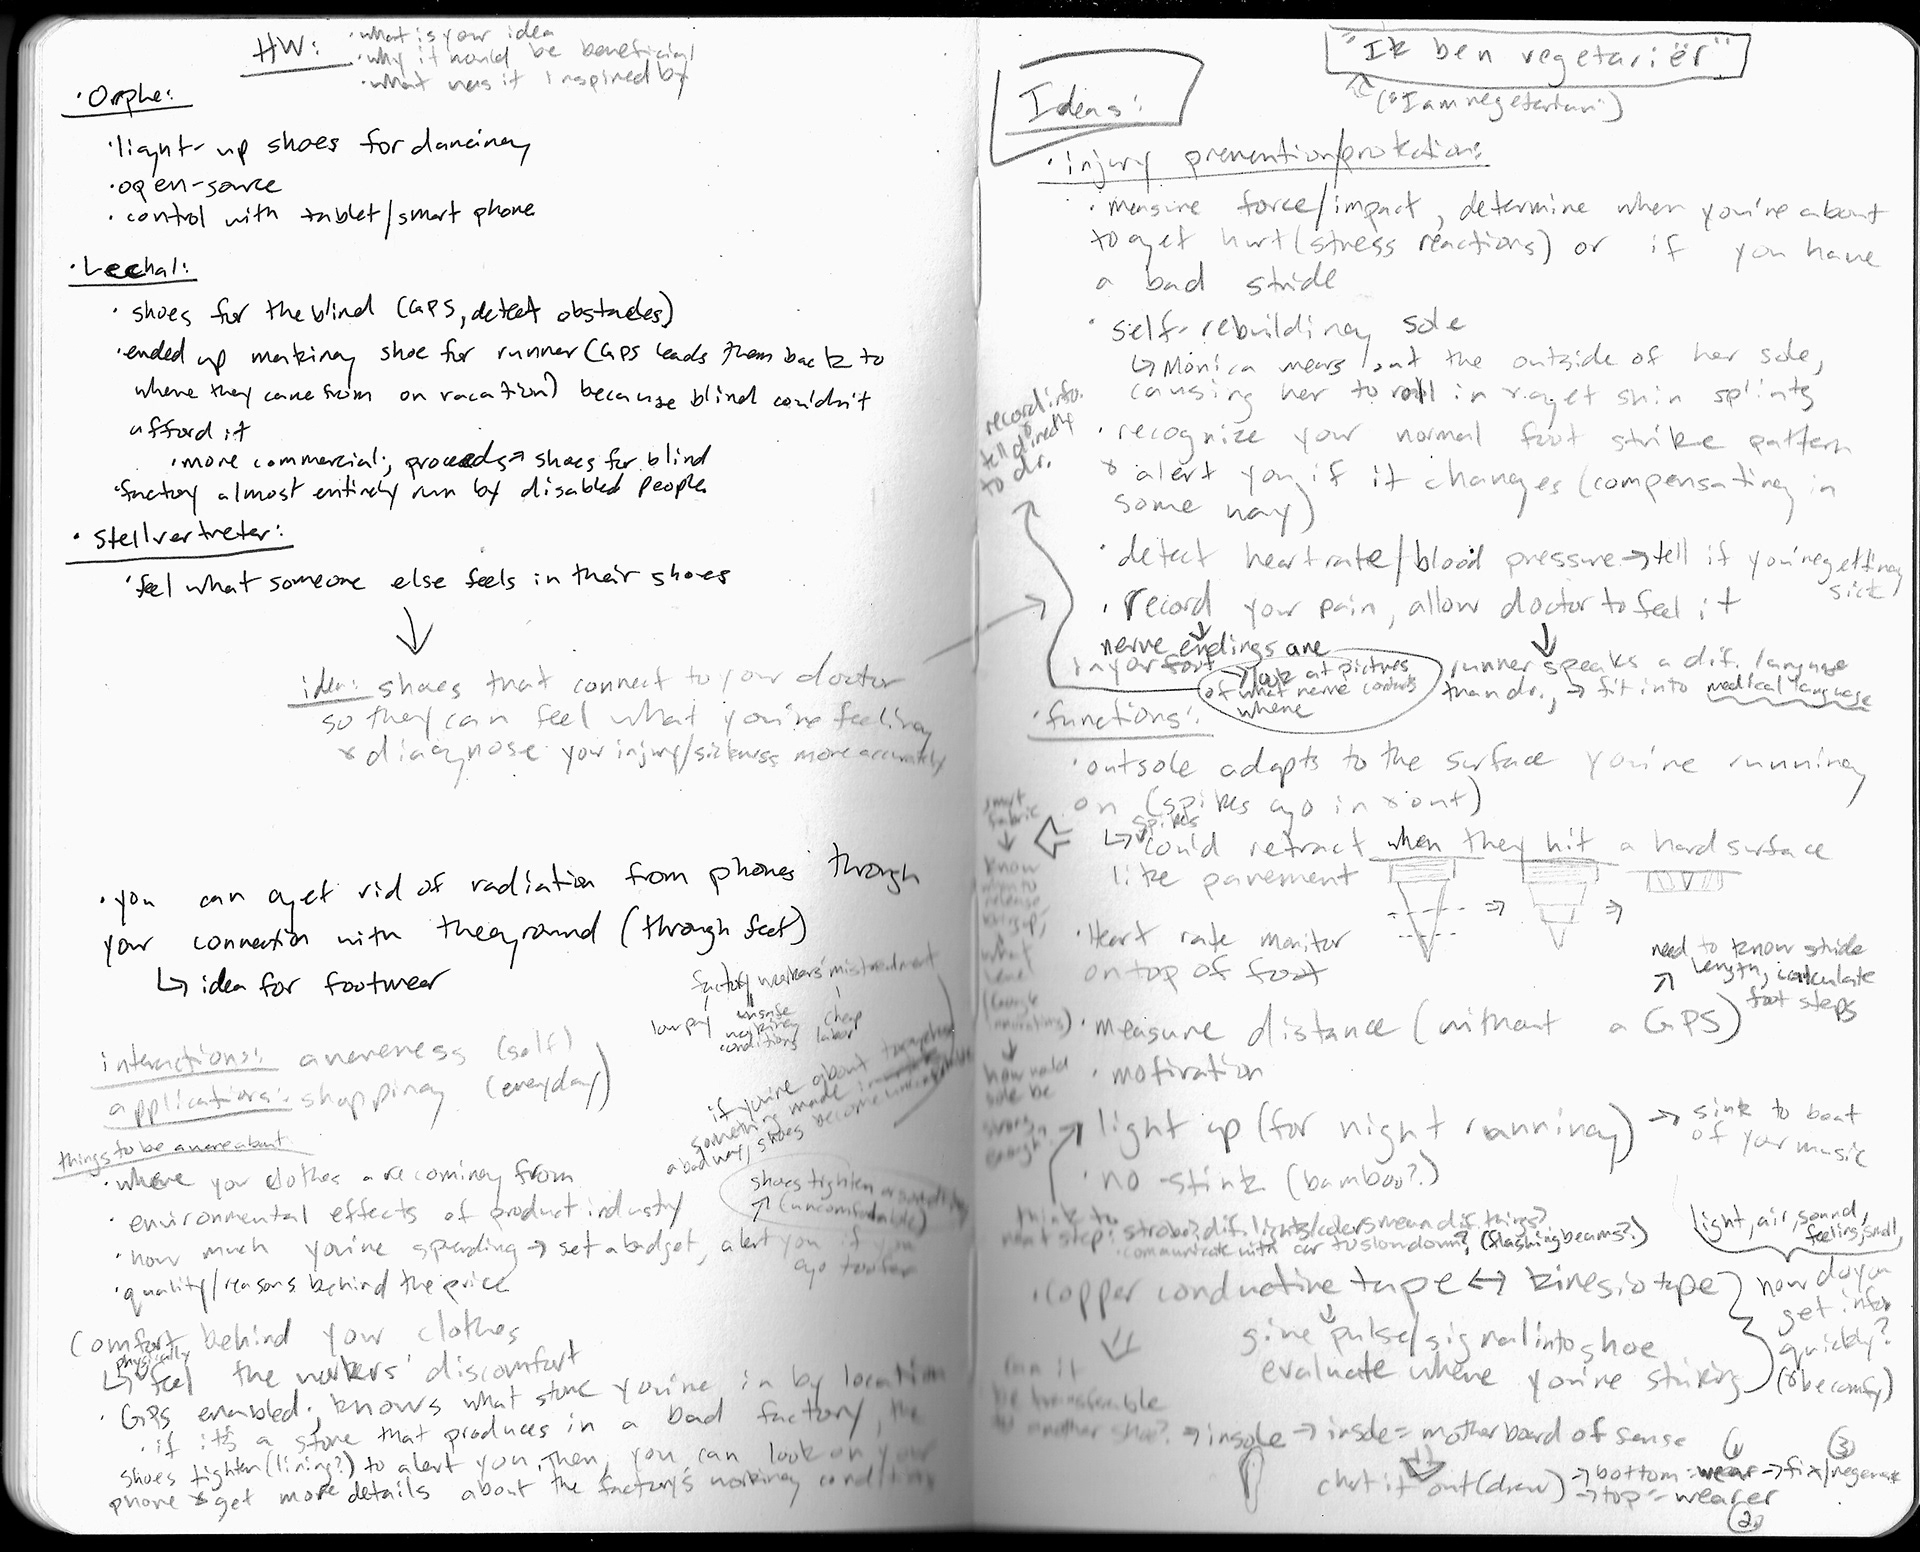 HW:
·what is your idea
·why it would be beneficial
·what was it inspired by
·Orphe:
·light-up shoes for dancing
·open-source
·control with tablet/smart phone
·Lechal:
·shoes for the blind (GPS, detect obstacles)
·ended up making shoe for runner (GPS leads them back to
where they came from on vacation) because blind couldn't
afford it
·more commercial; proceeds→ shoes for blind
·factory almost entirely run by disabled people
·stellvertreter:
·feel what someone else feels in their shoes
idea: shoes that connect to your doctor
so they can feel what you're feeling
& diagnose your injury/sickness more accurately
·you can get rid of radiation from phones through
your connection with the ground (through feet)
↳ idea for footwear
factory workers' mistreatment
low pay
unsafe
working
conditions
cheap
labor
interactions: awareness (self)
applications: shopping (everyday)
if you're about to
something made
a bad way, shoes become
things to be aware about
·where your clothes are coming from
·environmental effects of product industry
·how much you're spending → set a budget, alert you if you
go too far
·quality/reasons behind the price
shoes tighten around
↗ (uncomfortable)
Comfort behind your clothes
physically
↳ feel the workers' discomfort
·GPS enabled; knows what store you're in by location
·if it's a store that produces in a bad factory, the
shoes tighten (lining?) to alert you. Then, you can look on your
phone & get more details about the factory's working conditions
"Ik ben vegetariër"
("I am vegetarian")
Ideas:
·injury prevention/protection:
·measure force/impact, determine when you're about
to get hurt (stress reactions) or if you have
a bad stride
·self-rebuilding sole
↳ Monica wears out the outside of her sole,
causing her to roll in & get shin splints
·recognize your normal foot strike pattern
& alert you if it changes (compensating in
some way)
record info.
tell directly
to dr.
·detect heart rate/blood pressure → tell if you're getting
sick
·record your pain, allow doctor to feel it
nerve endings are
in your foot
→ look at pictures
of what nerve controls
where
runner speaks a dif. language
than dr., → fit into medical language
·functions:
·outsole adapts to the surface you're running
on (spikes go in & out)
spikes
↳ could retract when they hit a hard surface
like pavement
smart
fabric
know
when to
release
what
level
how would
sole be
strong
enough?
·Heart rate monitor
on top of foot
need to know stride
length, calculate
foot steps
·measure distance (without a GPS)
·motivation
·light up (for night running) → sink to beat
of your music
·no-stink (bamboo?)
think to
next step: strobe? dif. lights/colors mean dif. things?
·communicate with car to slow down? (flashing beams?)
light, air, sound,
feeling, smell
·copper conductive tape ↔ kinesiotape
how do you
get info
quickly?
(& be comfy)
give pulse/signal into shoe
evaluate where you're striking
can it
be transferable
to another shoe? → insole → insole = mother board of sense
chart it out (draw) → bottom = wear → fix/regenerate
→ top = wearer
① ③
②